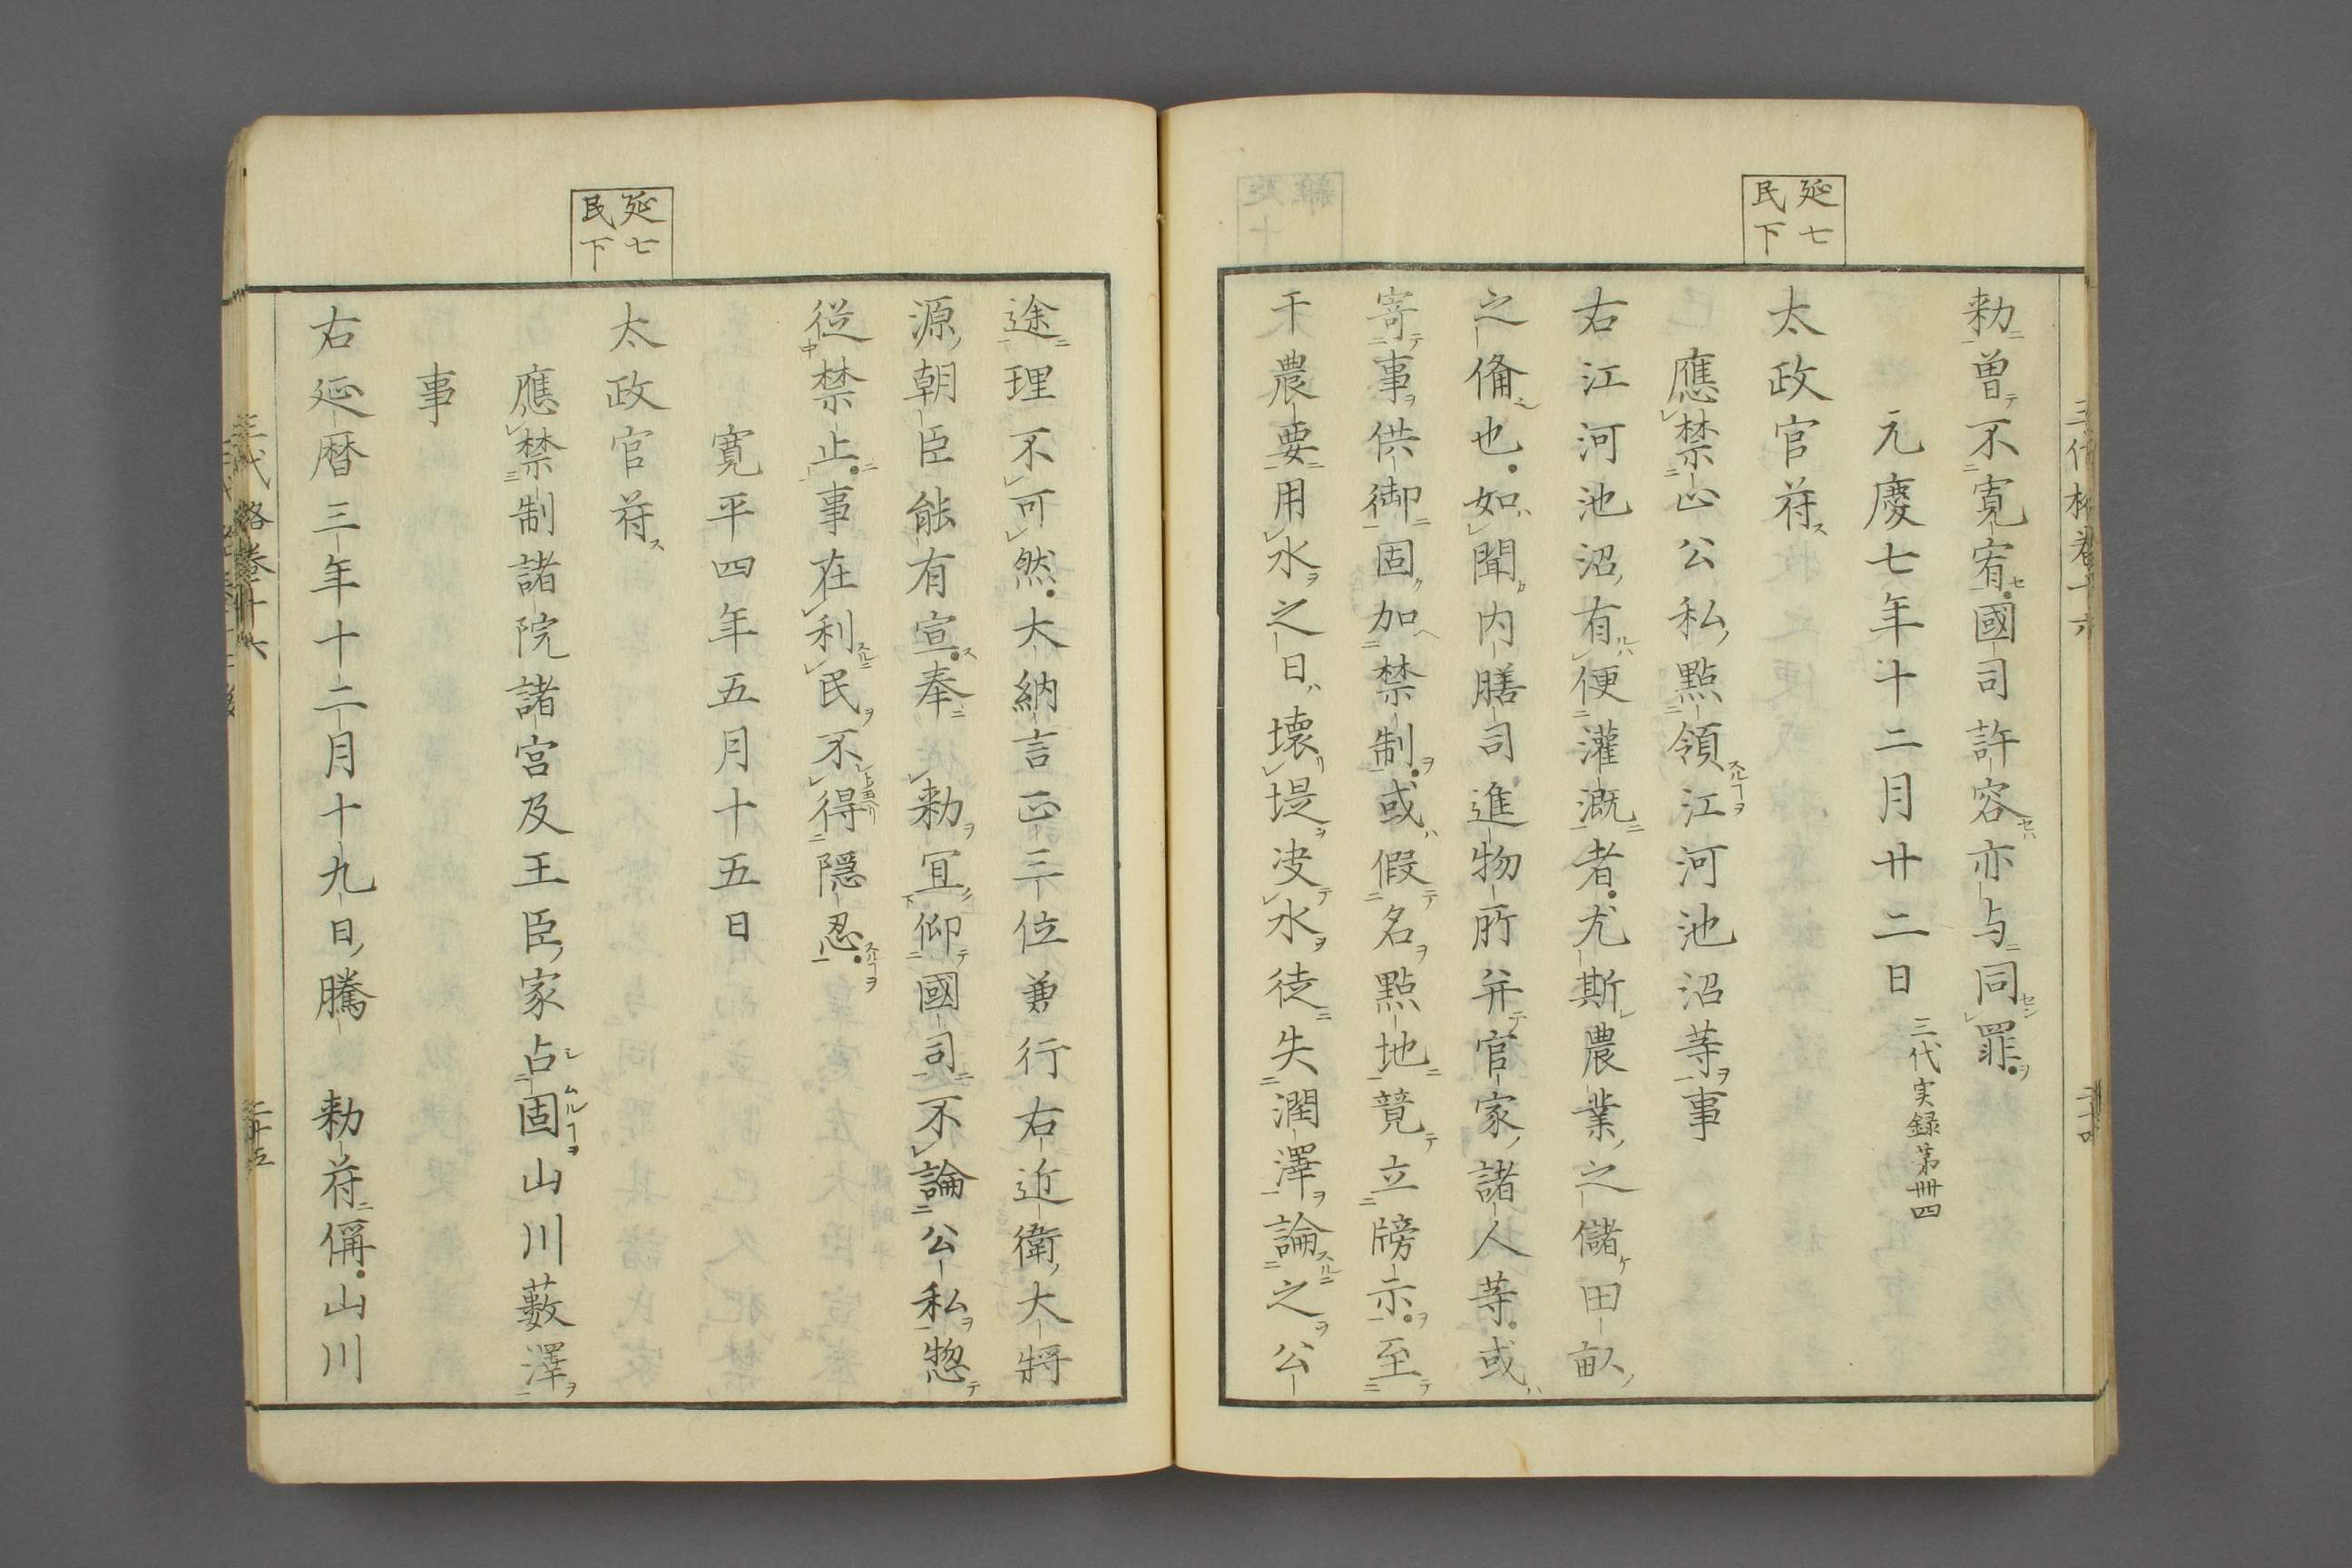 延七
民下
勅曽不寛宥國司許容亦与同罪
元慶七年十二月廿二日 三代実録第卌四
太政官符
應禁止公私點領江河池沼等事
右江河池沼有便灌漑者尤斯農業之儲田畝
之俻也如聞内膳司進物所并官家諸人等或
寄事供御固加禁制或假名點地竟立牓示至
干農要用水之日壊堤决水徒失潤澤論之公
延七
民下
途理不可然大納言正三位兼行右近衛大將
源朝臣能有宣奉勅冝仰國司不論公私惣
従禁止事在利民不得隠忍
寛平四年五月十五日
太政官符
應禁制諸院諸宮及王臣家占固山川藪澤
事
右延暦三年十二月十九日騰勅符偁山川